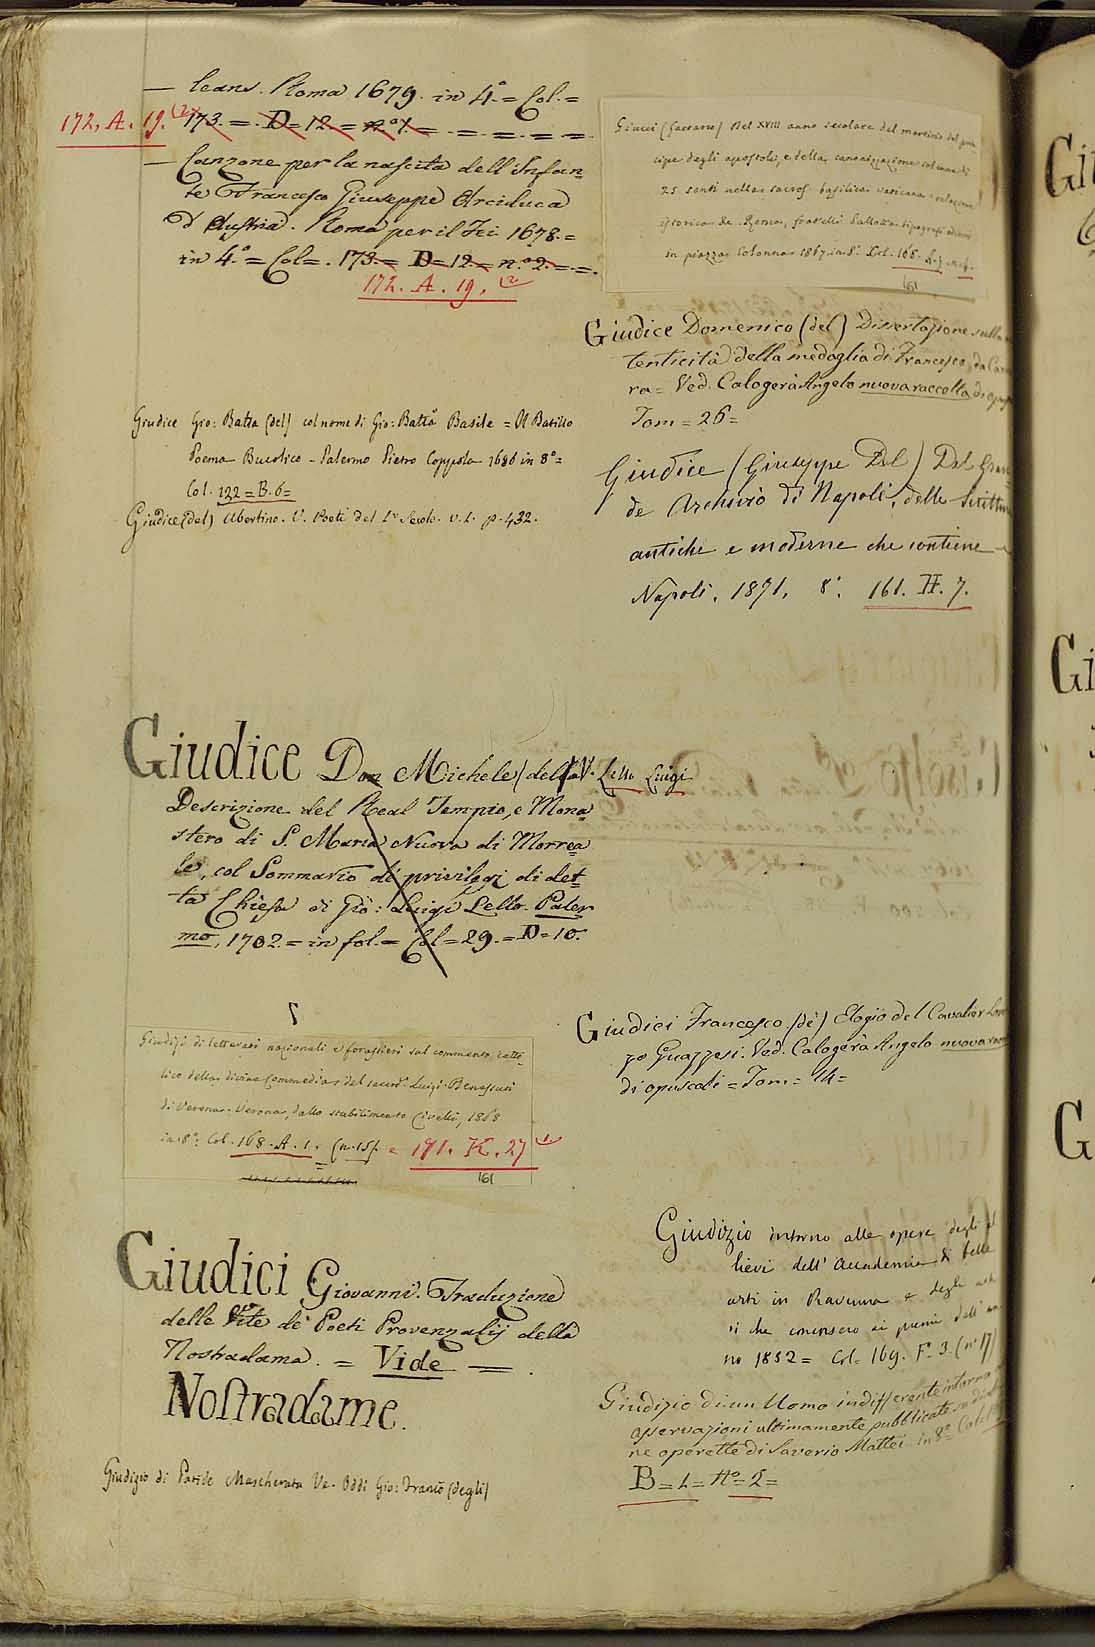 — leans. Roma 1679. in 4.° = Col. =
172. A. 19. (2) 173. = D = 12. = n.° 1. = = = = =
— Canzone per la nascita dell'Infan=
te Francesco Giuseppe Arciduca
d'Austria. Roma per il Tri 1678. =
in 4.° = Col = . 173. = D = 12. = n.° 2. = = .
172. A. 19. (2)
Giudice Gio: Batta (del) col nome di Gio: Batta Basile = Il Batillo
Poema Bucolico - Palermo Pietro Coppola 1686 in 8° =
Col. 122 = B. 6 =
Giudice (del) Ubertino. V. Poeti del 1° Secolo. v. 1. p. 432.
Giudice Don Michele (del) V. Lello Luigi
Descrizione del Real Tempio, e Mona=
stero di S. Maria Nuova di Morrea=
le, col Sommario de' privilegi di det=
ta Chiesa di Gio: Luigi Lello. Paler
mo, 1702. = in fol. = Col = 29. = D = 10.
Giudizj di letterati nazionali e forastieri sul commento catto=
lico della divina Commedia del sacerd. Luigi Benassuti
di Verona. Verona, dallo stabilimento Civelli, 1868
in 8°. Col. 168. A. 1. (n. 15). = 191. K. 27 (1)
161
Giudici Giovanni. Traduzione
delle Vite de' Poeti Provenzalij della
Nostradama. = Vide = .
Nostradame.
Giudizio di Paride Mascherata Ve. Oddi Gio: Franco (degli)
Giucci (Gaetano) Nel XVIII anno secolare del martirio del prin
cipe degli apostoli, e della canonizzazione solenne di
25 santi nella sacros. basilica vaticana: relazione
istorica &c. Roma, fratelli Pallotta tipografi
in piazza Colonna 1867. in 8°. Col. 168.
161
Giudice Domenico (del) Dissertazione sulla
tenticità della medaglia di Francesco da Carra
ra = Ved. Calogerà Angelo nuova raccolta di opus
Tom = 26 =
Giudice (Giuseppe Del) Del Gran
de Archivio di Napoli, delle Scritture
antiche e moderne che contiene
Napoli. 1871, 8°. 161. H. 7.
Giudici Francesco (de') Elogio del Cavalier Loren
zo Guazzesi. Ved. Calogerà Angelo nuova
di opuscoli = Tom = 14 =
Giudizio intorno alle opere degli al
lievi dell'Accademia di belle
arti in Ravenna e degli
si che concorsero ai premi dell'an
no 1852 = Col. 169. F. 3. (n. 17)
Giudizio di un Uomo indifferente intorno
osservazioni ultimamente pubblicate su
ne operette di Saverio Mattei in 8.°
B = 1 = N° = 2 =